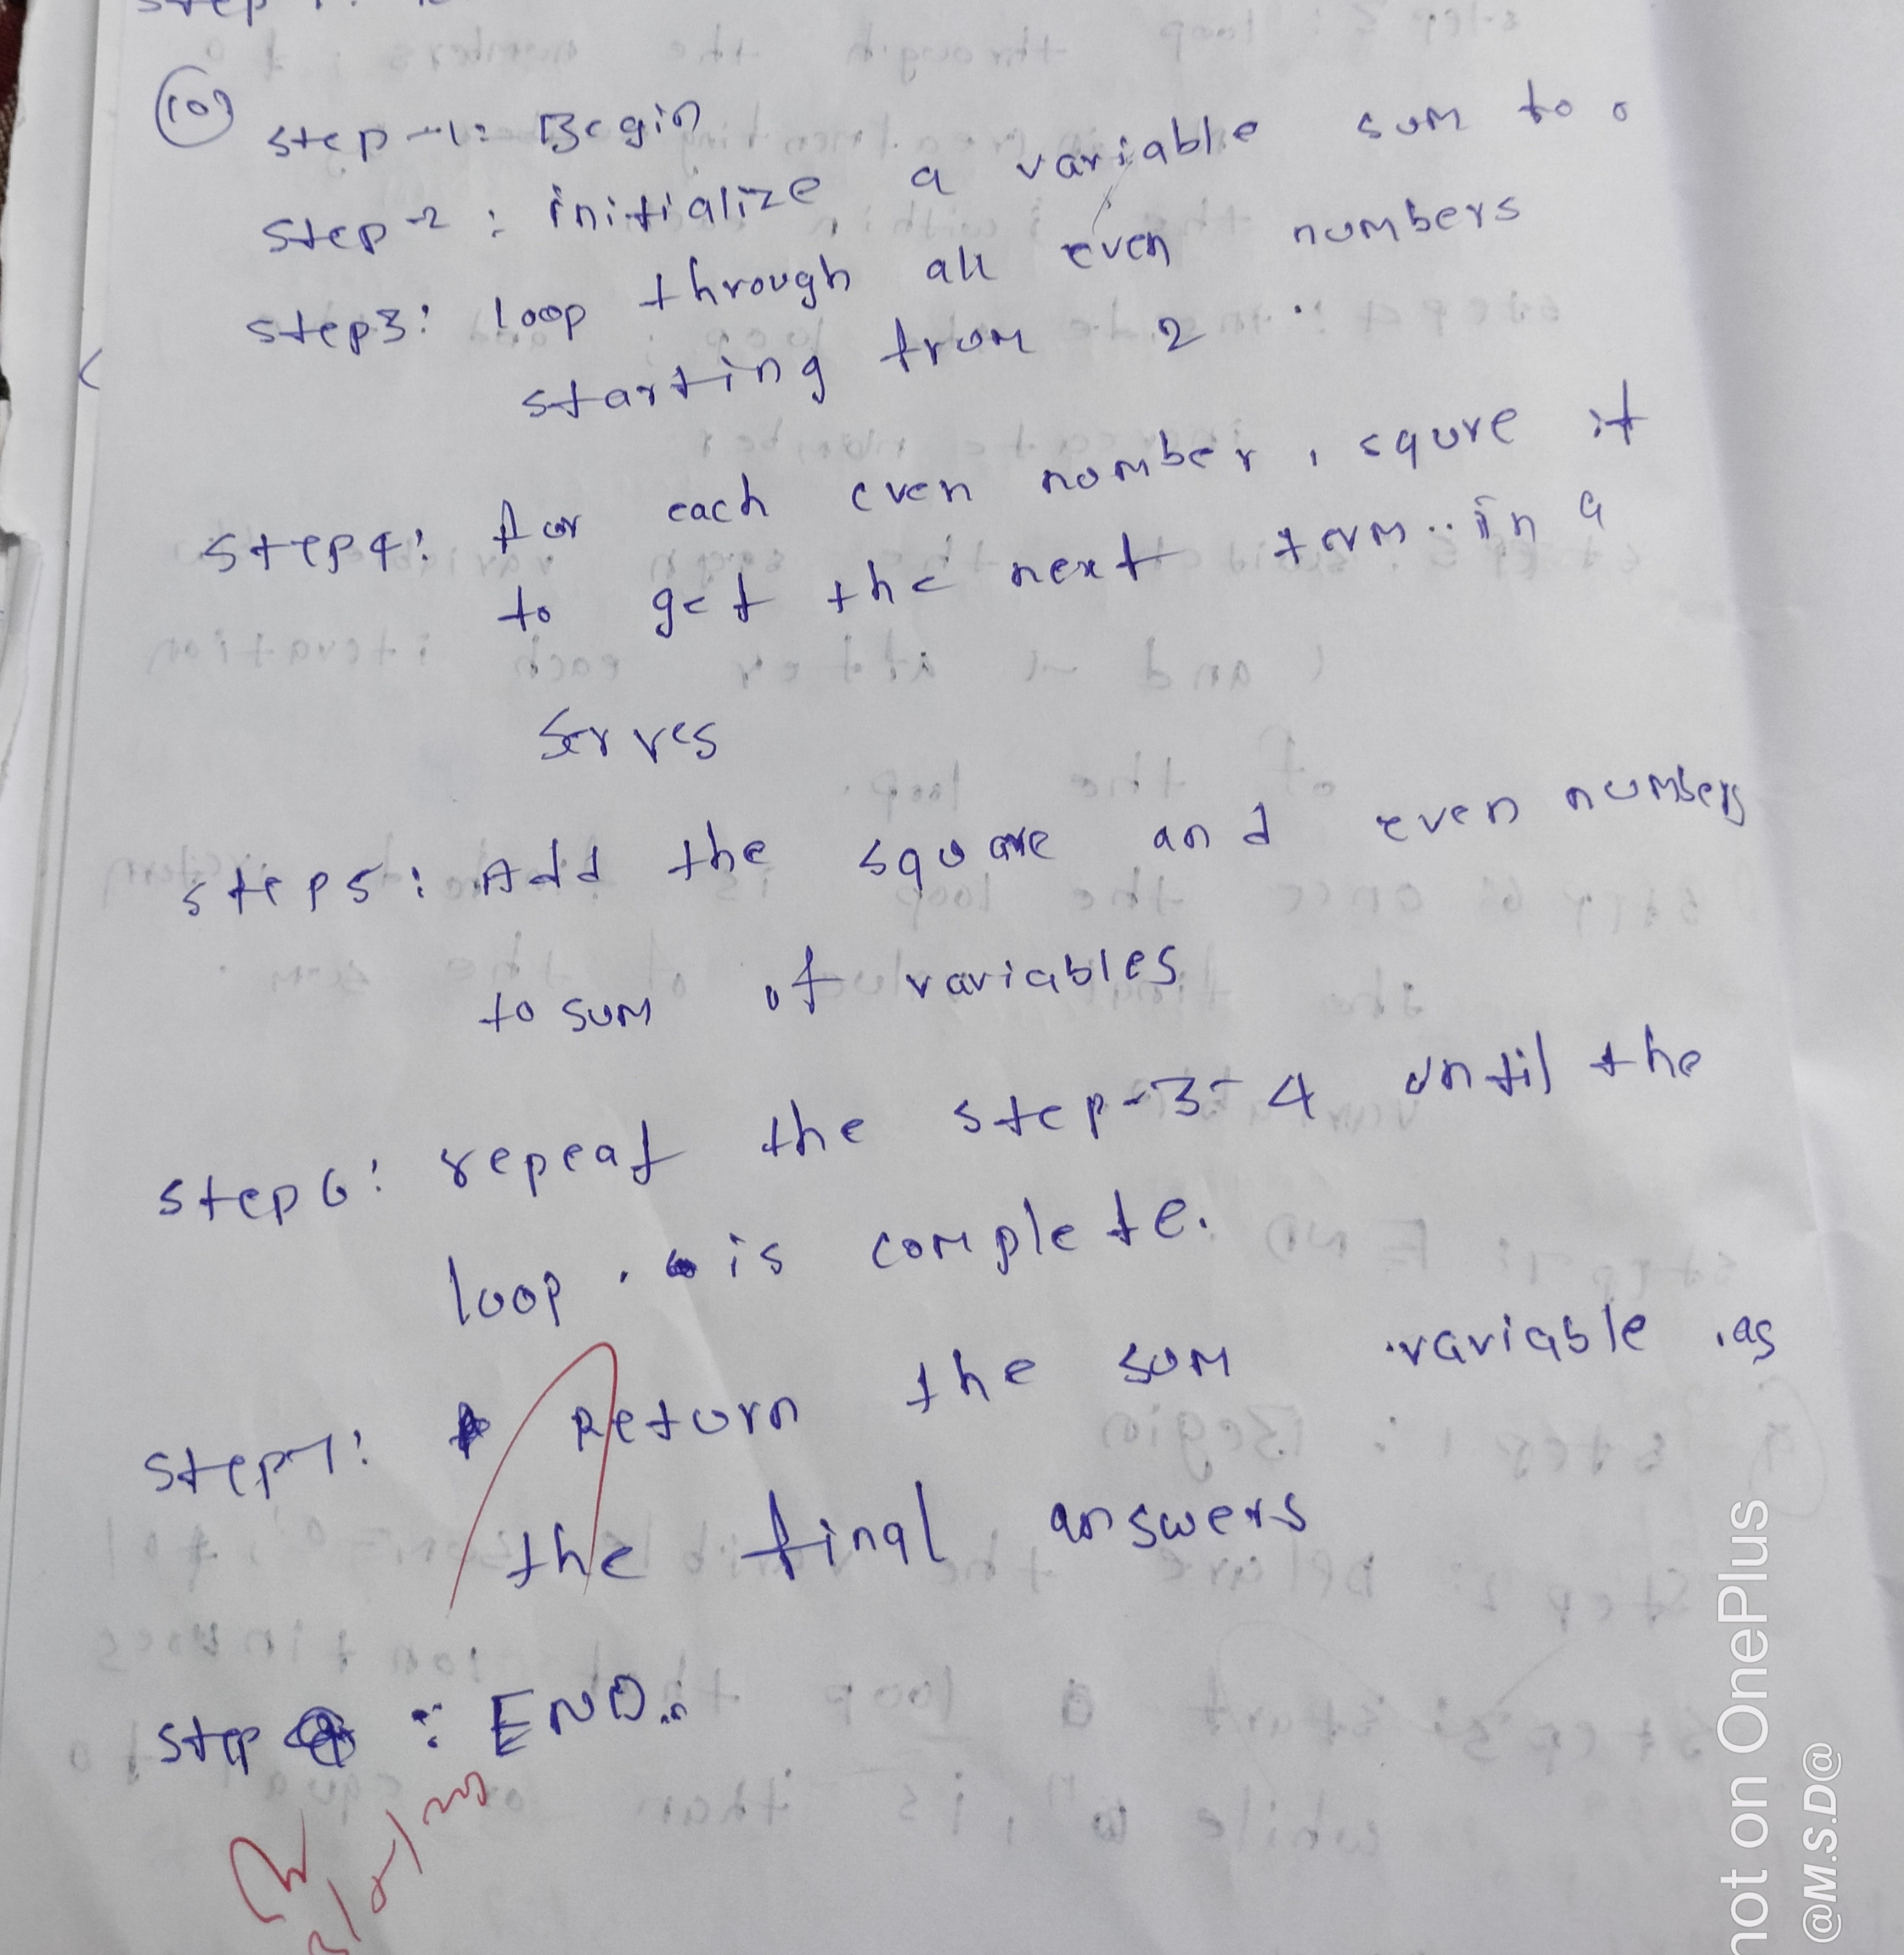 (10)
step-1: Begin
step-2: initialize a variable sum to 0
step3: loop through all even numbers
starting from 2
step4: for each even number, squre it
to get the next term in a
serves
step5: Add the square and even numbers
to sum of variables
step6: repeat the step-3-4 until the
loop is complete.
step7: Return the sum variable as
the final answers
step : END.
not on OnePlus
@M.S.D@